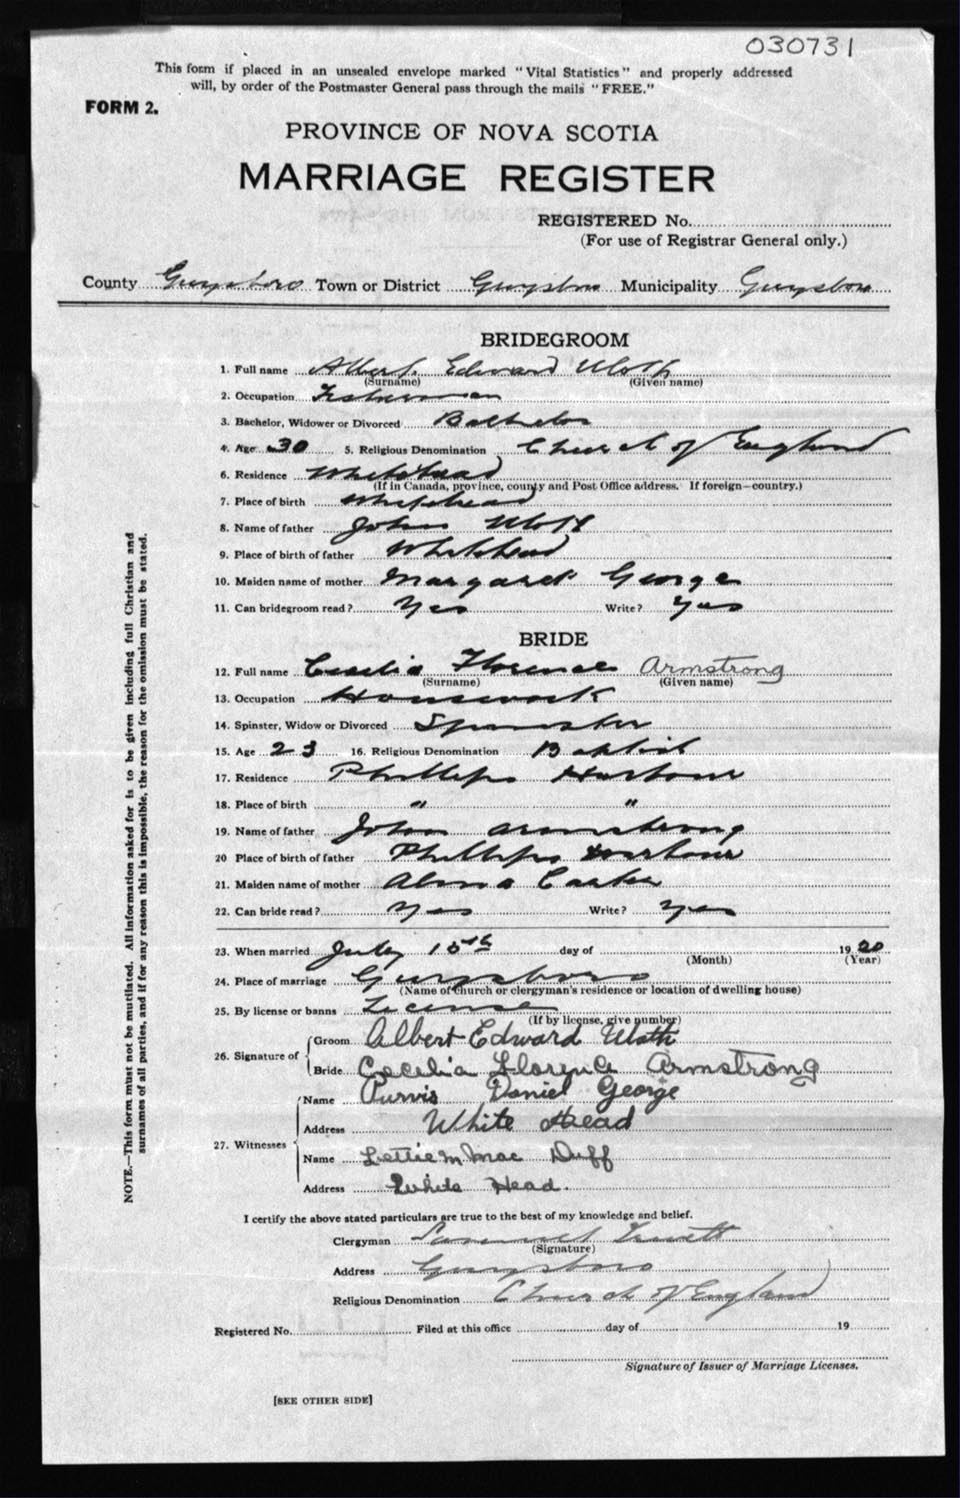 030731
This form if placed in an unsealed envelope marked "Vital Statistics" and properly addressed
will, by order of the Postmaster General pass through the mails "FREE."
FORM 2.
PROVINCE OF NOVA SCOTIA
MARRIAGE REGISTER
REGISTERED No.
(For use of Registrar General only.)
County Guysboro Town or District Guysboro Municipality Guysboro
BRIDEGROOM
1. Full name Albert Edward Uloth
(Surname) (Given name)
2. Occupation Fisherman
3. Bachelor, Widower or Divorced Bachelor
4. Age 30 5. Religious Denomination Church of England
6. Residence Whitehead
(If in Canada, province, county and Post Office address. If foreign—country.)
7. Place of birth Whitehead
8. Name of father John Uloth
9. Place of birth of father Whitehead
10. Maiden name of mother Margaret George
11. Can bridegroom read? Yes Write? Yes
BRIDE
12. Full name Cecelia Florence Armstrong
(Surname) (Given name)
13. Occupation Housework
14. Spinster, Widow or Divorced Spinster
15. Age 23 16. Religious Denomination Baptist
17. Residence Phillips Harbour
18. Place of birth " "
19. Name of father John Armstrong
20 Place of birth of father Phillips Harbour
21. Maiden name of mother Alma
22. Can bride read? Yes Write? Yes
23. When married July 15th day of 1920
(Month) (Year)
24. Place of marriage Guysboro
(Name of Church or clergyman's residence or location of dwelling house)
25. By license or banns License
(If by license, give number)
26. Signature of Groom Albert Edward Uloth
Bride Cecelia Florence Armstrong
27. Witnesses Name Purvis Daniel George
Address White Head
Name Lettie M Mac Duff
Address White Head.
I certify the above stated particulars are true to the best of my knowledge and belief.
Clergyman Samuel Trivett
(Signature)
Address Guysboro
Religious Denomination Church of England
Registered No. Filed at this office day of 19
Signature of Issuer of Marriage Licenses.
[SEE OTHER SIDE]
NOTE.—This form must not be mutilated. All information asked for is to be given including full Christian and
surnames of all parties, and if for any reason this is impossible, the reason for the omission must be stated.